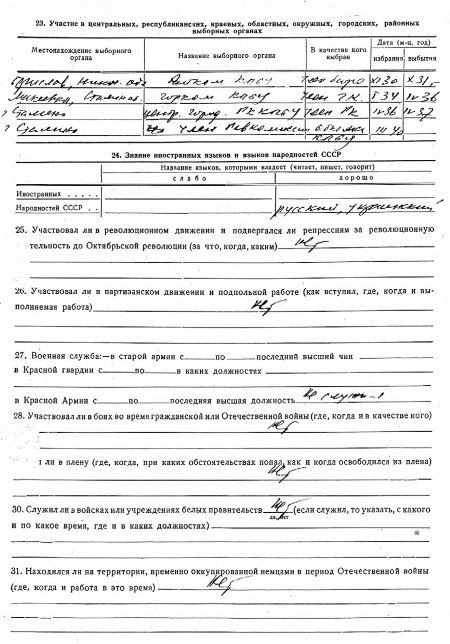 23. Участие в центральных, республиканских, краевых, областных, окружных, городских, районных
выборных органах
Местонахождение выборного органа
Название выборного органа
В качестве кого выбран
Дата (м-ц, год)
избрания
выбытия
КПбУ XI 30 X 31
Макеевка, горком КПбУ член ГК. I 34 36
? Сталино центр. город. РК КПбУ член РК 36 37
? Сталино член КПбУ III 40
24. Знание иностранных языков и языков народностей СССР
Название языков, которыми владеет (читает, пишет, говорит)
слабо
хорошо
Иностранных
Народностей СССР русский, украинский
25. Участвовал ли в революционном движении и подвергался ли репрессиям за революционную
тельность до Октябрьской революции (за что, когда, каким) Нет
26. Участвовал ли в партизанском движении и подпольной работе (как вступил, где, когда и вы-
полняемая работа) Нет
27. Военная служба:—в старой армии с по последний высший чин
в Красной гвардии с по в каких должностях
в Красной Армии с по последняя высшая должность Не служил
28. Участвовал ли в боях во время гражданской или Отечественной войны (где, когда и в качестве кого)
Нет
ли в плену (где, когда, при каких обстоятельствах попал, как и когда освободился из плена)
Нет
30. Служил ли в войсках или учреждениях белых правительств Нет (если служил, то указать, с какого
и по какое время, где и в каких должностях)
31. Находился ли на территории, временно оккупированной немцами в период Отечественной войны
(где, когда и работа в это время) Нет